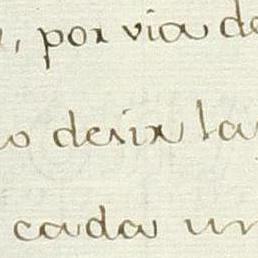 , por via de
o deix la
cada un